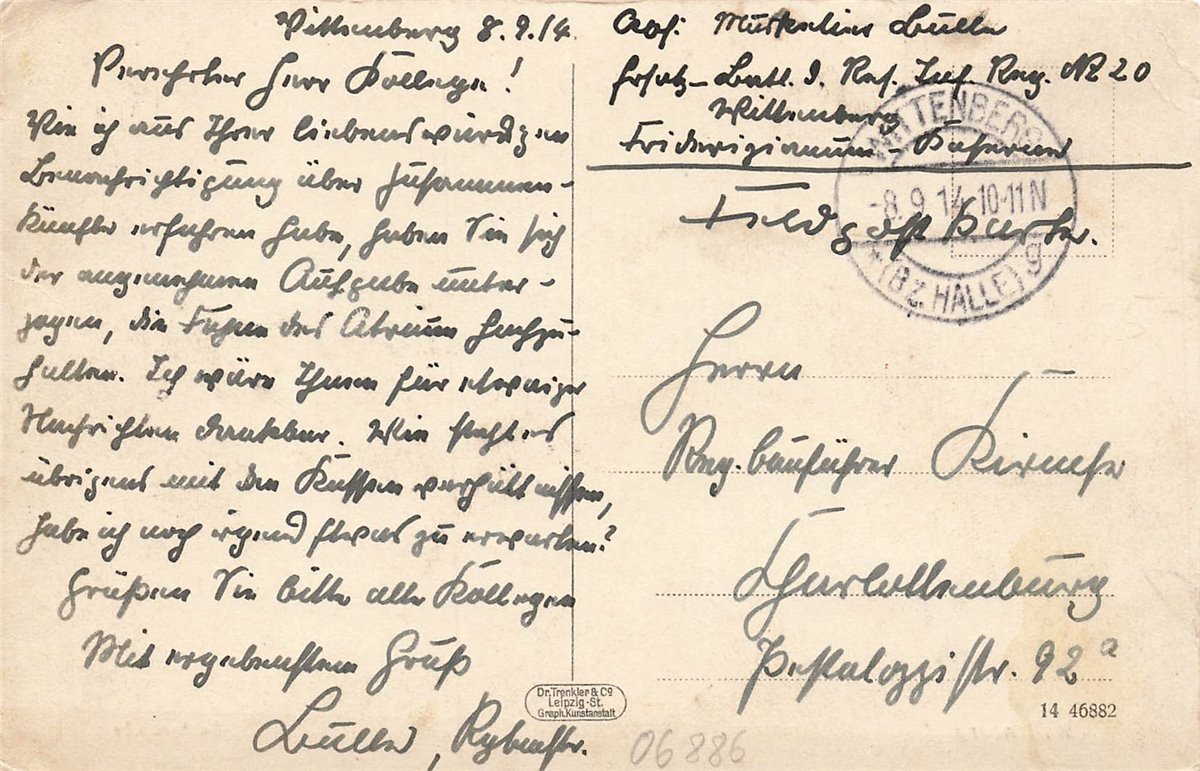 Wittenberg 8.9.14.
Verehrter Herr Kollege!
Wie ich aus Ihrer liebenswürdigen
Benachrichtigung über Zusammen-
künfte erfahren habe, haben Sie sich
der angenehmen Aufgabe unter-
zogen, die Fahne des Atrium hochzu-
halten. Ich wäre Ihnen für etwaige
Nachrichten dankbar. Wie steht es
übrigens mit den Kassenverhältnissen,
habe ich noch irgend etwas zu erwarten?
Grüßen Sie bitte alle Kollegen
Mit ergebenstem Gruß
Bulle,
Abs: Musketier Bulle
Ersatz-Batl. d. Res. Inf. Reg. No 20
Wittenberg
Friderizianum-Kaserne
Feldpostkarte.
WITTENBERG
-8.9.14.10-11N
*(Bz. HALLE) g
Herrn
Reg. bauführer
Charlottenburg
Pestalozzistr. 92a
Dr. Trenkler & Co
Leipzig-St.
Graph. Kunstanstalt
14 46882
06886